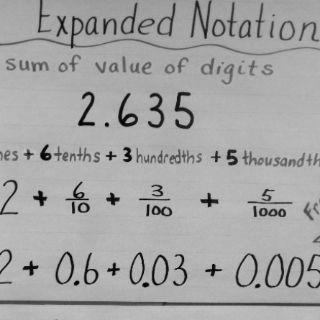 Expanded Notation
sum of value of digits
2.635
+ 6 tenths + 3 hundredths + 5 thousandth
2 + 6/10 + 3/100 + 5/1000
2 + 0.6 + 0.03 + 0.005